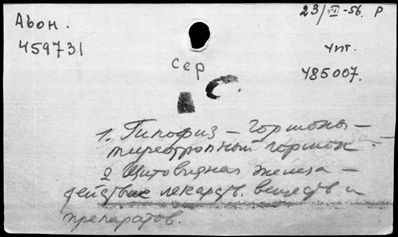 Авон. 23/VII-56. Р
459731 Чит.
сер 485007.
1. Гипофиз – гормоны –
тиреотропный гормон.
2 Щитовидная железа –
действие лекарств. веществ и
препаратов.